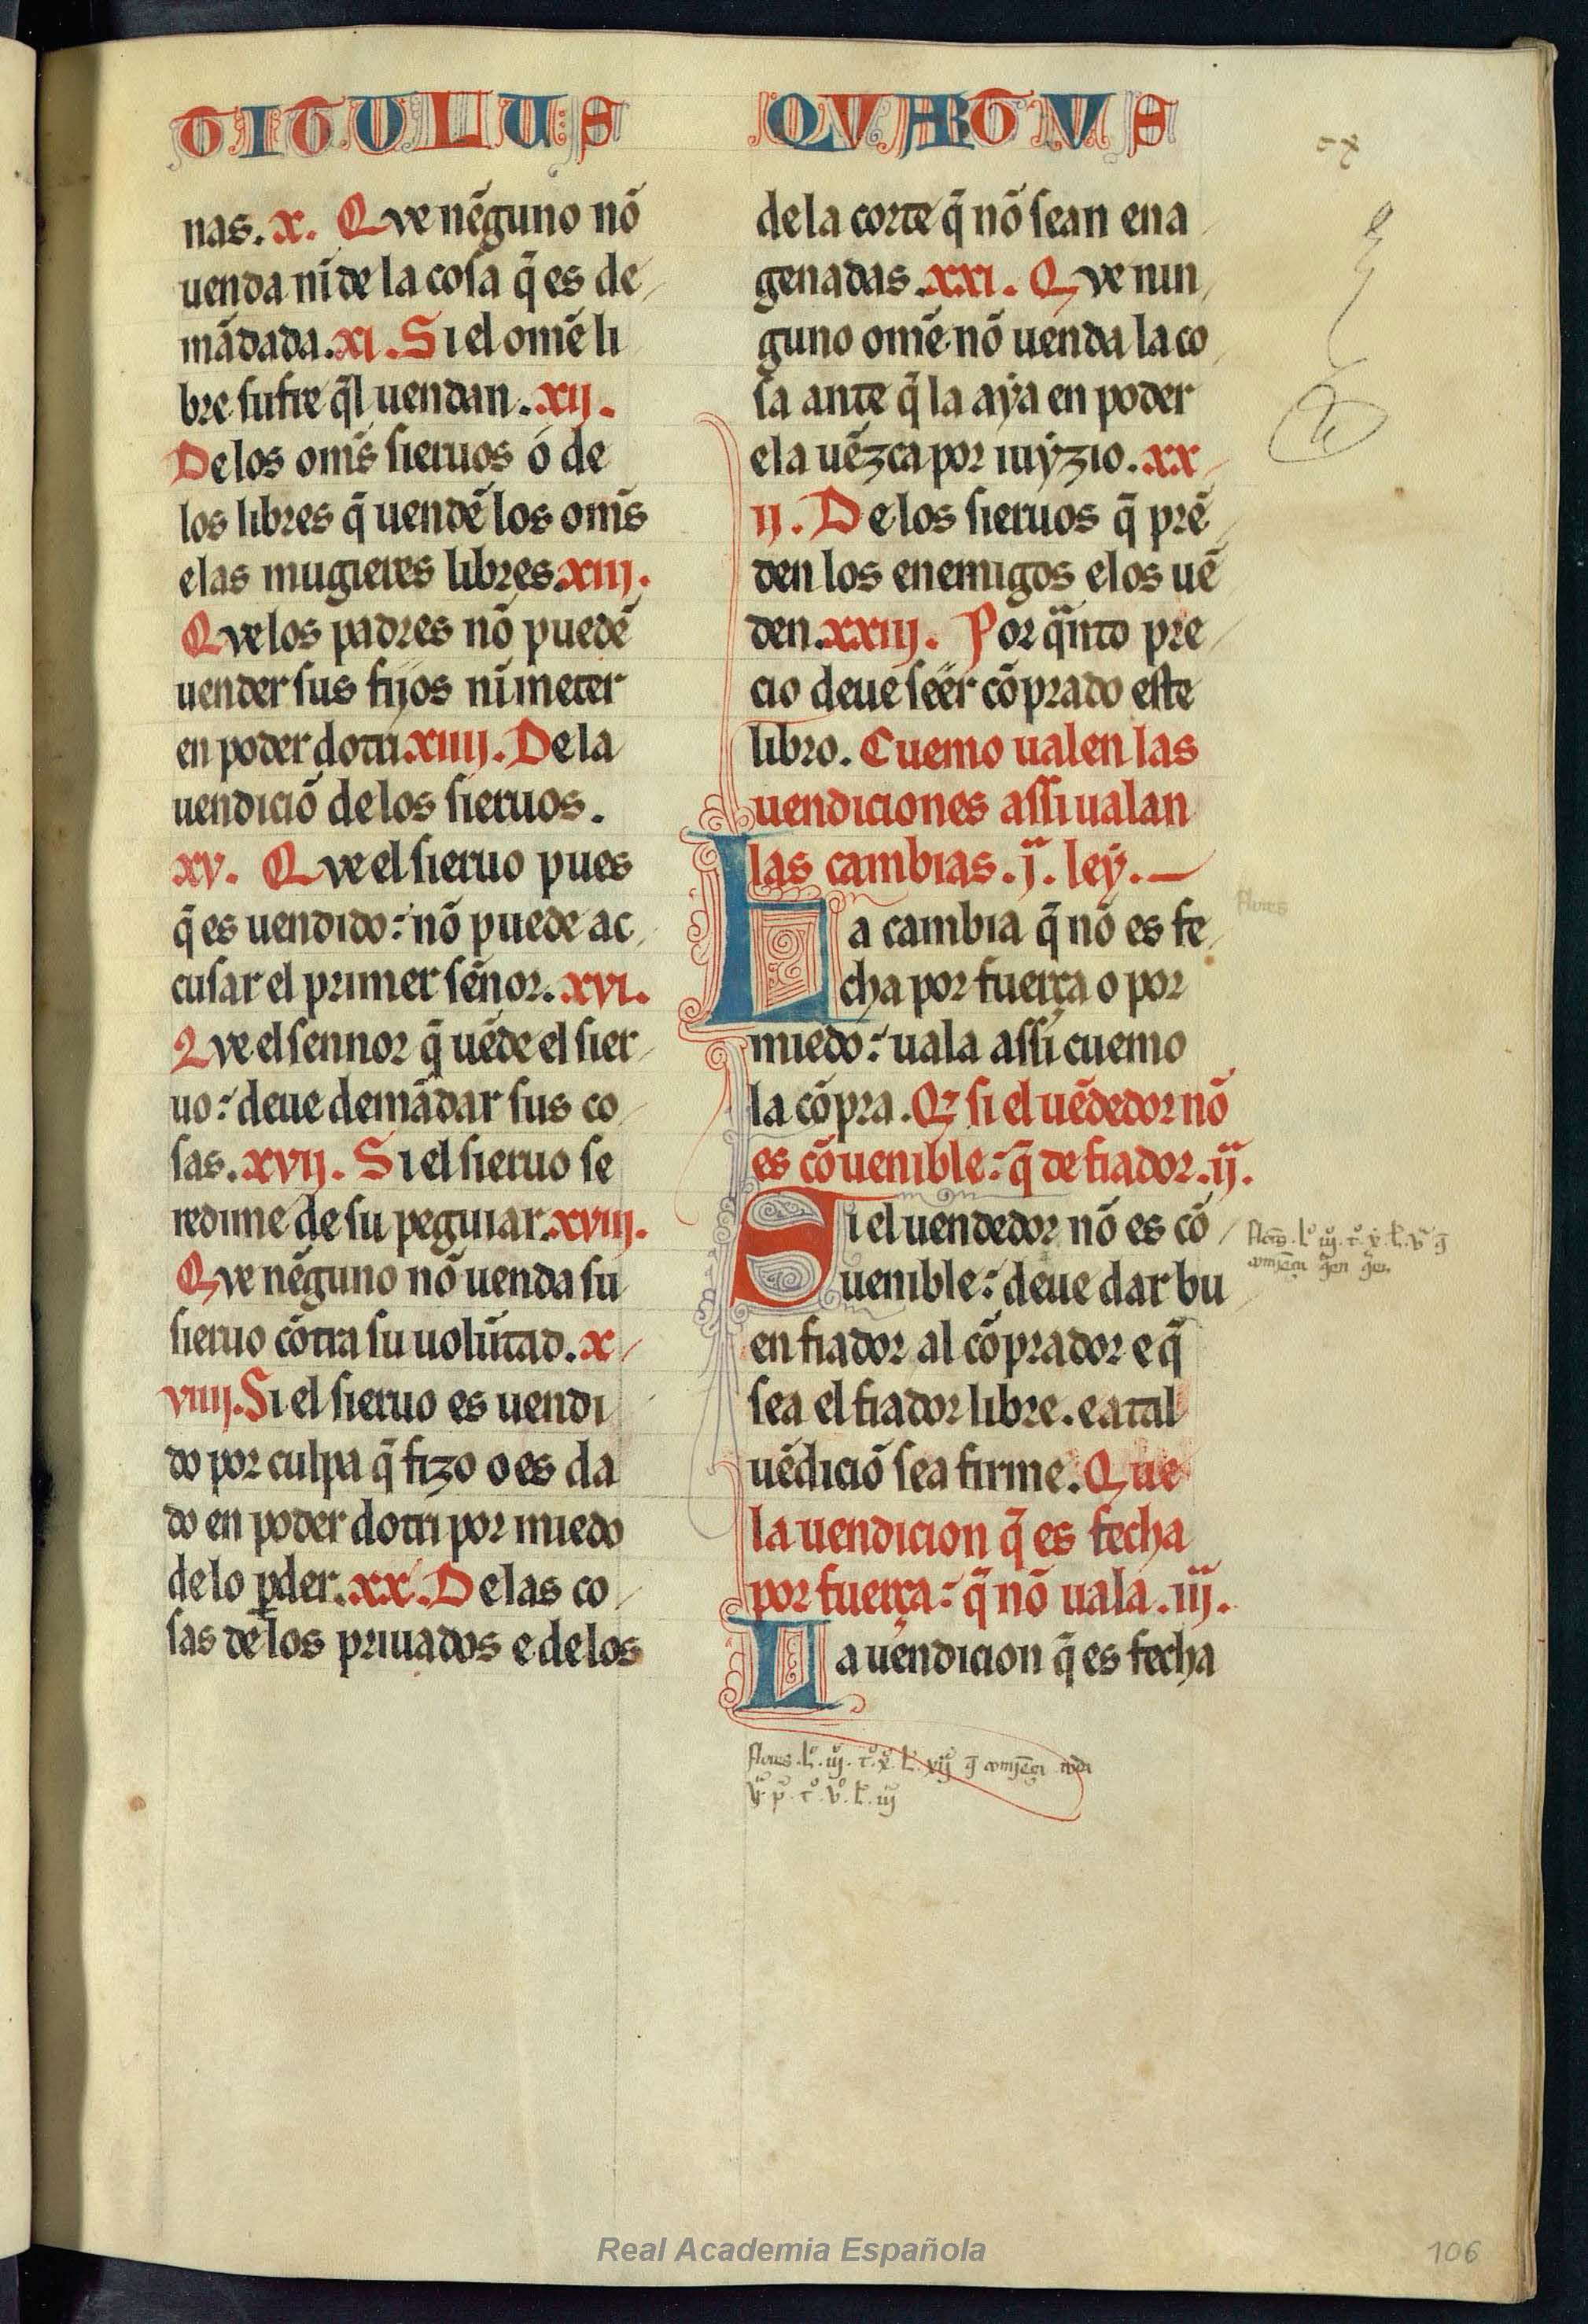 TITULUS QUARTUS
nas. x. Que nẽguno nõ
uenda nĩ de la cosa q̃ es de
mãdada. xi. Si el omẽ li
bre sufre q̃l uendan. xij.
De los om̃s sieruos o de
los libres q̃ uendẽ los om̃s
e las mugieres libres. xiij.
Que los padres nõ puedẽ
uender sus fijos nĩ meter
en poder dotri. xiiij. De la
uendiciõ de los sieruos.
xv. Que el sieruo pues
q̃ es uendido: nõ puede ac
cusar el primer sẽnor. xvi.
Que el sennor q̃ uẽde el sier
uo: deue demãdar sus co
sas. xvij. Si el sieruo se
redime de su peguiar. xviij.
Que nẽguno nõ uenda su
sieruo cõtra su uolũtad. x
viiij. Si el sieruo es uendi
do por culpa q̃ fizo o es da
do en poder dotri por miedo
de lo ꝑder. xx. De las co
sas de los priuados e de los
de la corte q̃ nõ sean ena
genadas. xxi. Que nin
guno omẽ nõ uenda la co
sa ante q̃ la aya en poder
e la uẽzca por iuyzio. xx
ij. De los sieruos q̃ prẽ
den los enemigos e los uẽ
den. xxiij. Por q̃nto pre
cio deue seer cõprado este
libro. Cuemo ualen las
uendiciones assi ualan
las cambias. j.ª ley.
La cambia q̃ nõ es fe
cha por fuerça o por
miedo: uala assi cuemo
la cõpra. Q̃ si el uẽdedor nõ
es cõuenible: q̃ de fiador. ij.ª
Si el uendedor nõ es cõ
uenible: deue dar bu
en fiador al cõprador e q̃
sea el fiador libre. e atal
uẽdiciõ sea firme. Que
la uendicion q̃ es fecha
por fuerça: q̃ nõ uala. iij.ª
La uendicion q̃ es fecha
Real Academia Española
106